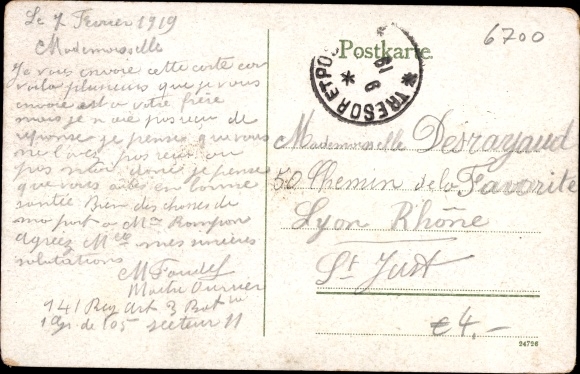 Le 7 Fevrier 1919
Mademoiselle
Je vous envoie cette carte car
voila plusieurs que je vous
envoie est a votre frère
mais je n'aie pas recu de
reponse je pense que vous
ne l'avez pas recu ou
pas donc je pense
que vous aites en bonne
santée Bien des choses de
ma part a Mme
agreez Melle mes sincères
salutations
M
Maitre Ouvrier
141 Reg Art 3 Bat
de 105 secteur 11
Postkarte
TRESOR ET POSTES
6700
Mademoiselle Desrayaud
50 Chemin de la Favorite
Lyon Rhône
St Just
€4,-
24726